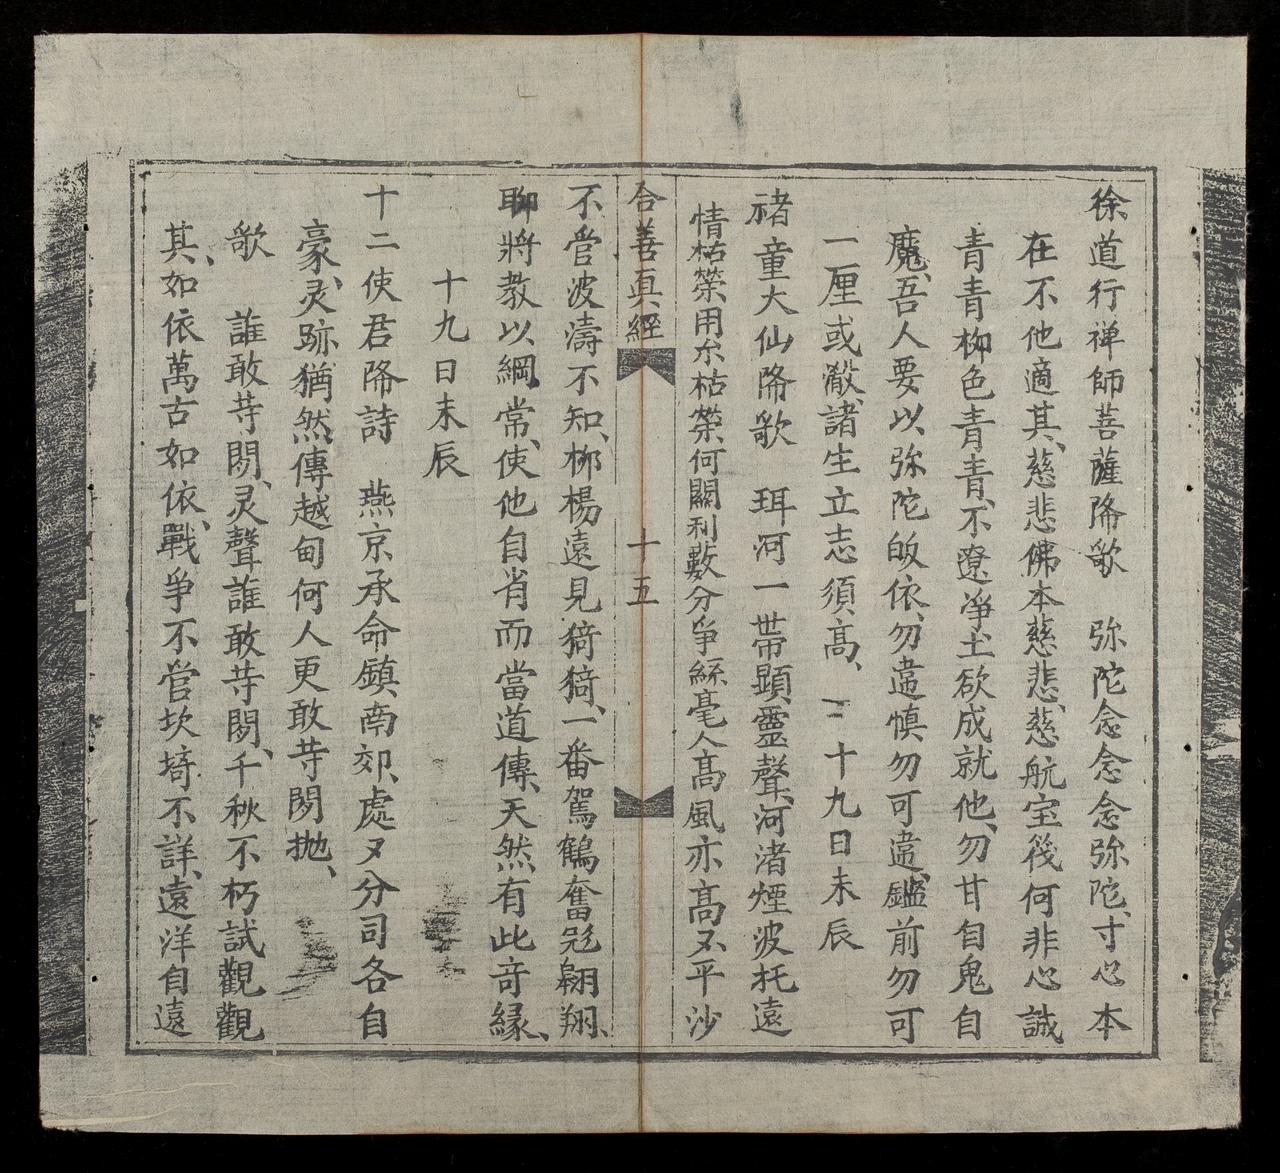 徐道行禅師菩薩降歌　弥陀念念念弥陀、寸心本
在不他適其、慈悲佛本慈悲、慈航宝筏何非心誠
青青柳色青青、不遼淨土欲成就他、勿甘自鬼自
魔、吾人要以弥陀皈依、勿違慎勿可違、鑑前勿可
一厘或瀫、諸生立志須高、　二十九日未辰
褚童大仙降歌　珥河一帯顕靈聲、河渚煙波托遠
情枯榮用尒枯榮何關利數分爭絲毫人高風亦高又平沙
合善真經　十五
不管波濤不知、柳楊遠見猗猗、一番駕鶴奮彩翩翔、
聊将教以綱常、使他自肖而當道傳、天然有此竒緣、
十九日未辰
十二使君降詩　燕京承命鎮南郊、處又分司各自
豪、灵跡猶然傳越甸何人更敢䒭閖抛、
歌　誰敢䒭閖、灵聲誰敢䒭閖、千秋不朽試觀觀
其、如依萬古如依、戰爭不管坎埼不詳、遠洋自遠